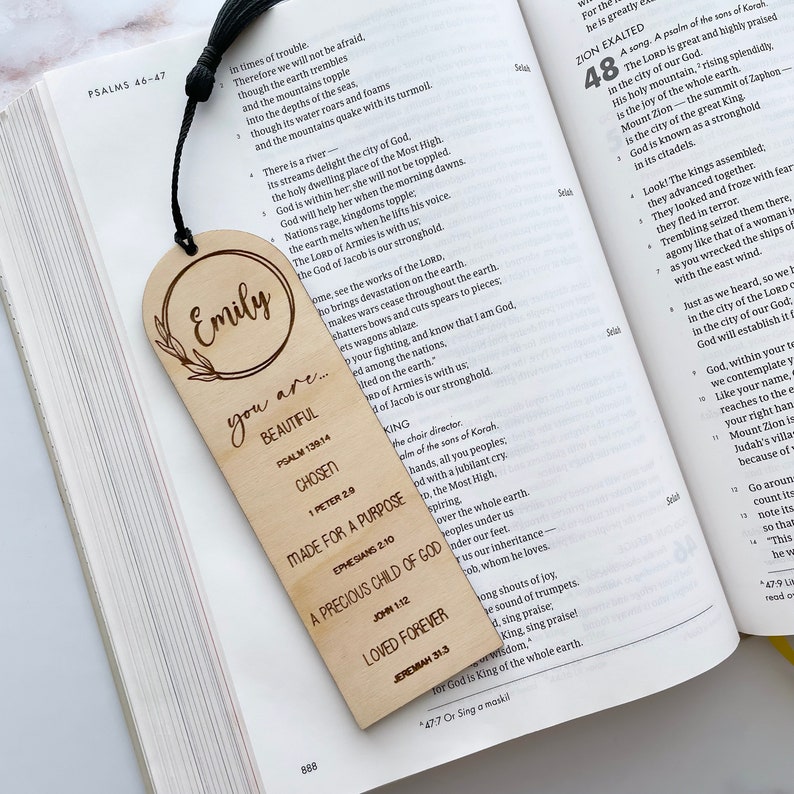 PSALMS 46–47
in times of trouble.
2 Therefore we will not be afraid,
though the earth trembles
and the mountains topple
into the depths of the seas,
3 though its water roars and foams
and the mountains quake with its turmoil. Selah
4 There is a river —
its streams delight the city of God,
the holy dwelling place of the Most High.
5 God is within her; she will not be toppled.
God will help her when the morning dawns.
6 Nations rage, kingdoms topple;
the earth melts when he lifts his voice.
7 The LORD of Armies is with us;
the God of Jacob is our stronghold. Selah
ome, see the works of the LORD,
ho brings devastation on the earth.
makes wars cease throughout the earth.
shatters bows and cuts spears to pieces;
ets wagons ablaze.
your fighting, and know that I am God,
ted among the nations,
alted on the earth.”
LORD of Armies is with us;
of Jacob is our stronghold. Selah
KING
the choir director.
alm of the sons of Korah.
hands, all you peoples;
od with a jubilant cry.
, the Most High,
spiring,
over the whole earth.
peoples under us
under our feet.
us our inheritance —
cob, whom he loves. Selah
mong shouts of joy,
he sound of trumpets.
d, sing praise;
King, sing praise!
of wisdom,ᴬ
for God is King of the whole earth.
ᴬ 47:7 Or Sing a maskil
888
Emily
you are...
BEAUTIFUL
PSALM 139:14
CHOSEN
1 PETER 2:9
MADE FOR A PURPOSE
EPHESIANS 2:10
A PRECIOUS CHILD OF GOD
JOHN 1:12
LOVED FOREVER
JEREMIAH 31:3
For the leaders
he is greatly exal
ZION EXALTED
48 A song. A psalm of the sons of Korah.
The LORD is great and highly praised
in the city of our God.
His holy mountain, rising splendidly,
is the joy of the whole earth.
Mount Zion — the summit of Zaphon —
is the city of the great King.
3 God is known as a stronghold
in its citadels.
4 Look! The kings assembled;
they advanced together.
5 They looked and froze with fear
they fled in terror.
6 Trembling seized them there,
agony like that of a woman in
7 as you wrecked the ships of
with the east wind.
8 Just as we heard, so we h
in the city of the LORD o
in the city of our God;
God will establish it f
9 God, within your te
we contemplate y
10 Like your name, G
reaches to the e
your right han
11 Mount Zion is
Judah's villag
because of y
12 Go aroun
count its
13 note its
so that
14 “This
he w
ᴬ 47:9 Lit
read ov